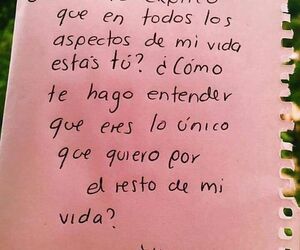 que en todos los
aspectos de mi vida
estás tú? ¿Cómo
te hago entender
que eres lo único
que quiero por
el resto de mi
vida?